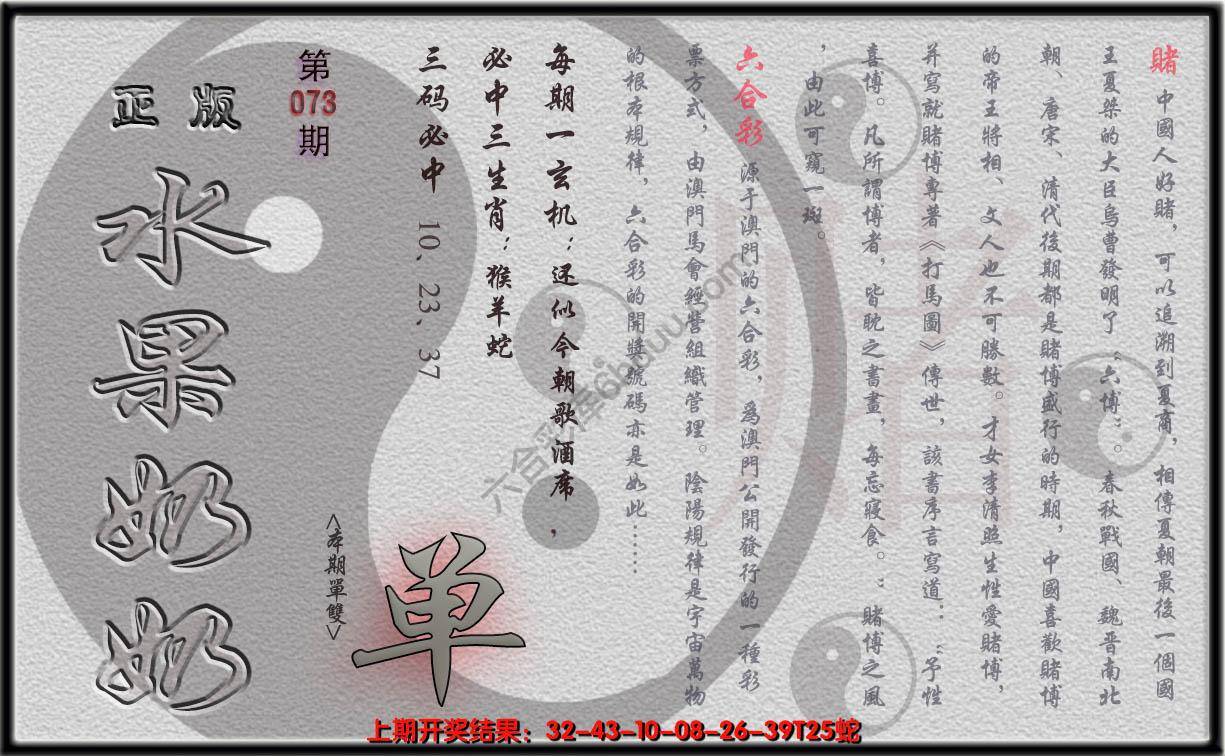 賭 中國人好賭，可以追溯到夏商，相傳夏朝最後一個國
王夏桀的大臣烏曹發明了“六博”。春秋戰國、魏晋南北
朝、唐宋、清代後期都是賭博盛行的時期，中國喜歡賭博
的帝王將相、文人也不可勝數。才女李清照生性愛賭博，
并寫就賭博專著《打馬圖》傳世，該書序言寫道：“予性
喜博。凡所謂博者，皆耽之書畫，每忘寢食。”賭博之風
，由此可窺一斑。
六合彩 源于澳門的六合彩，爲澳門公開發行的一種彩
票方式，由澳門馬會經營組織管理。陰陽規律是宇宙萬物
的根本規律，六合彩的開獎號碼亦是如此……
每期一玄机：还似今朝歌酒席，
必中三生肖：猴羊蛇
三码必中 10、23、37
第073期
<本期單雙>
单
正版
水果奶奶
賭
六合彩库6huuu.com
上期开奖结果：32-43-10-08-26-39T25蛇